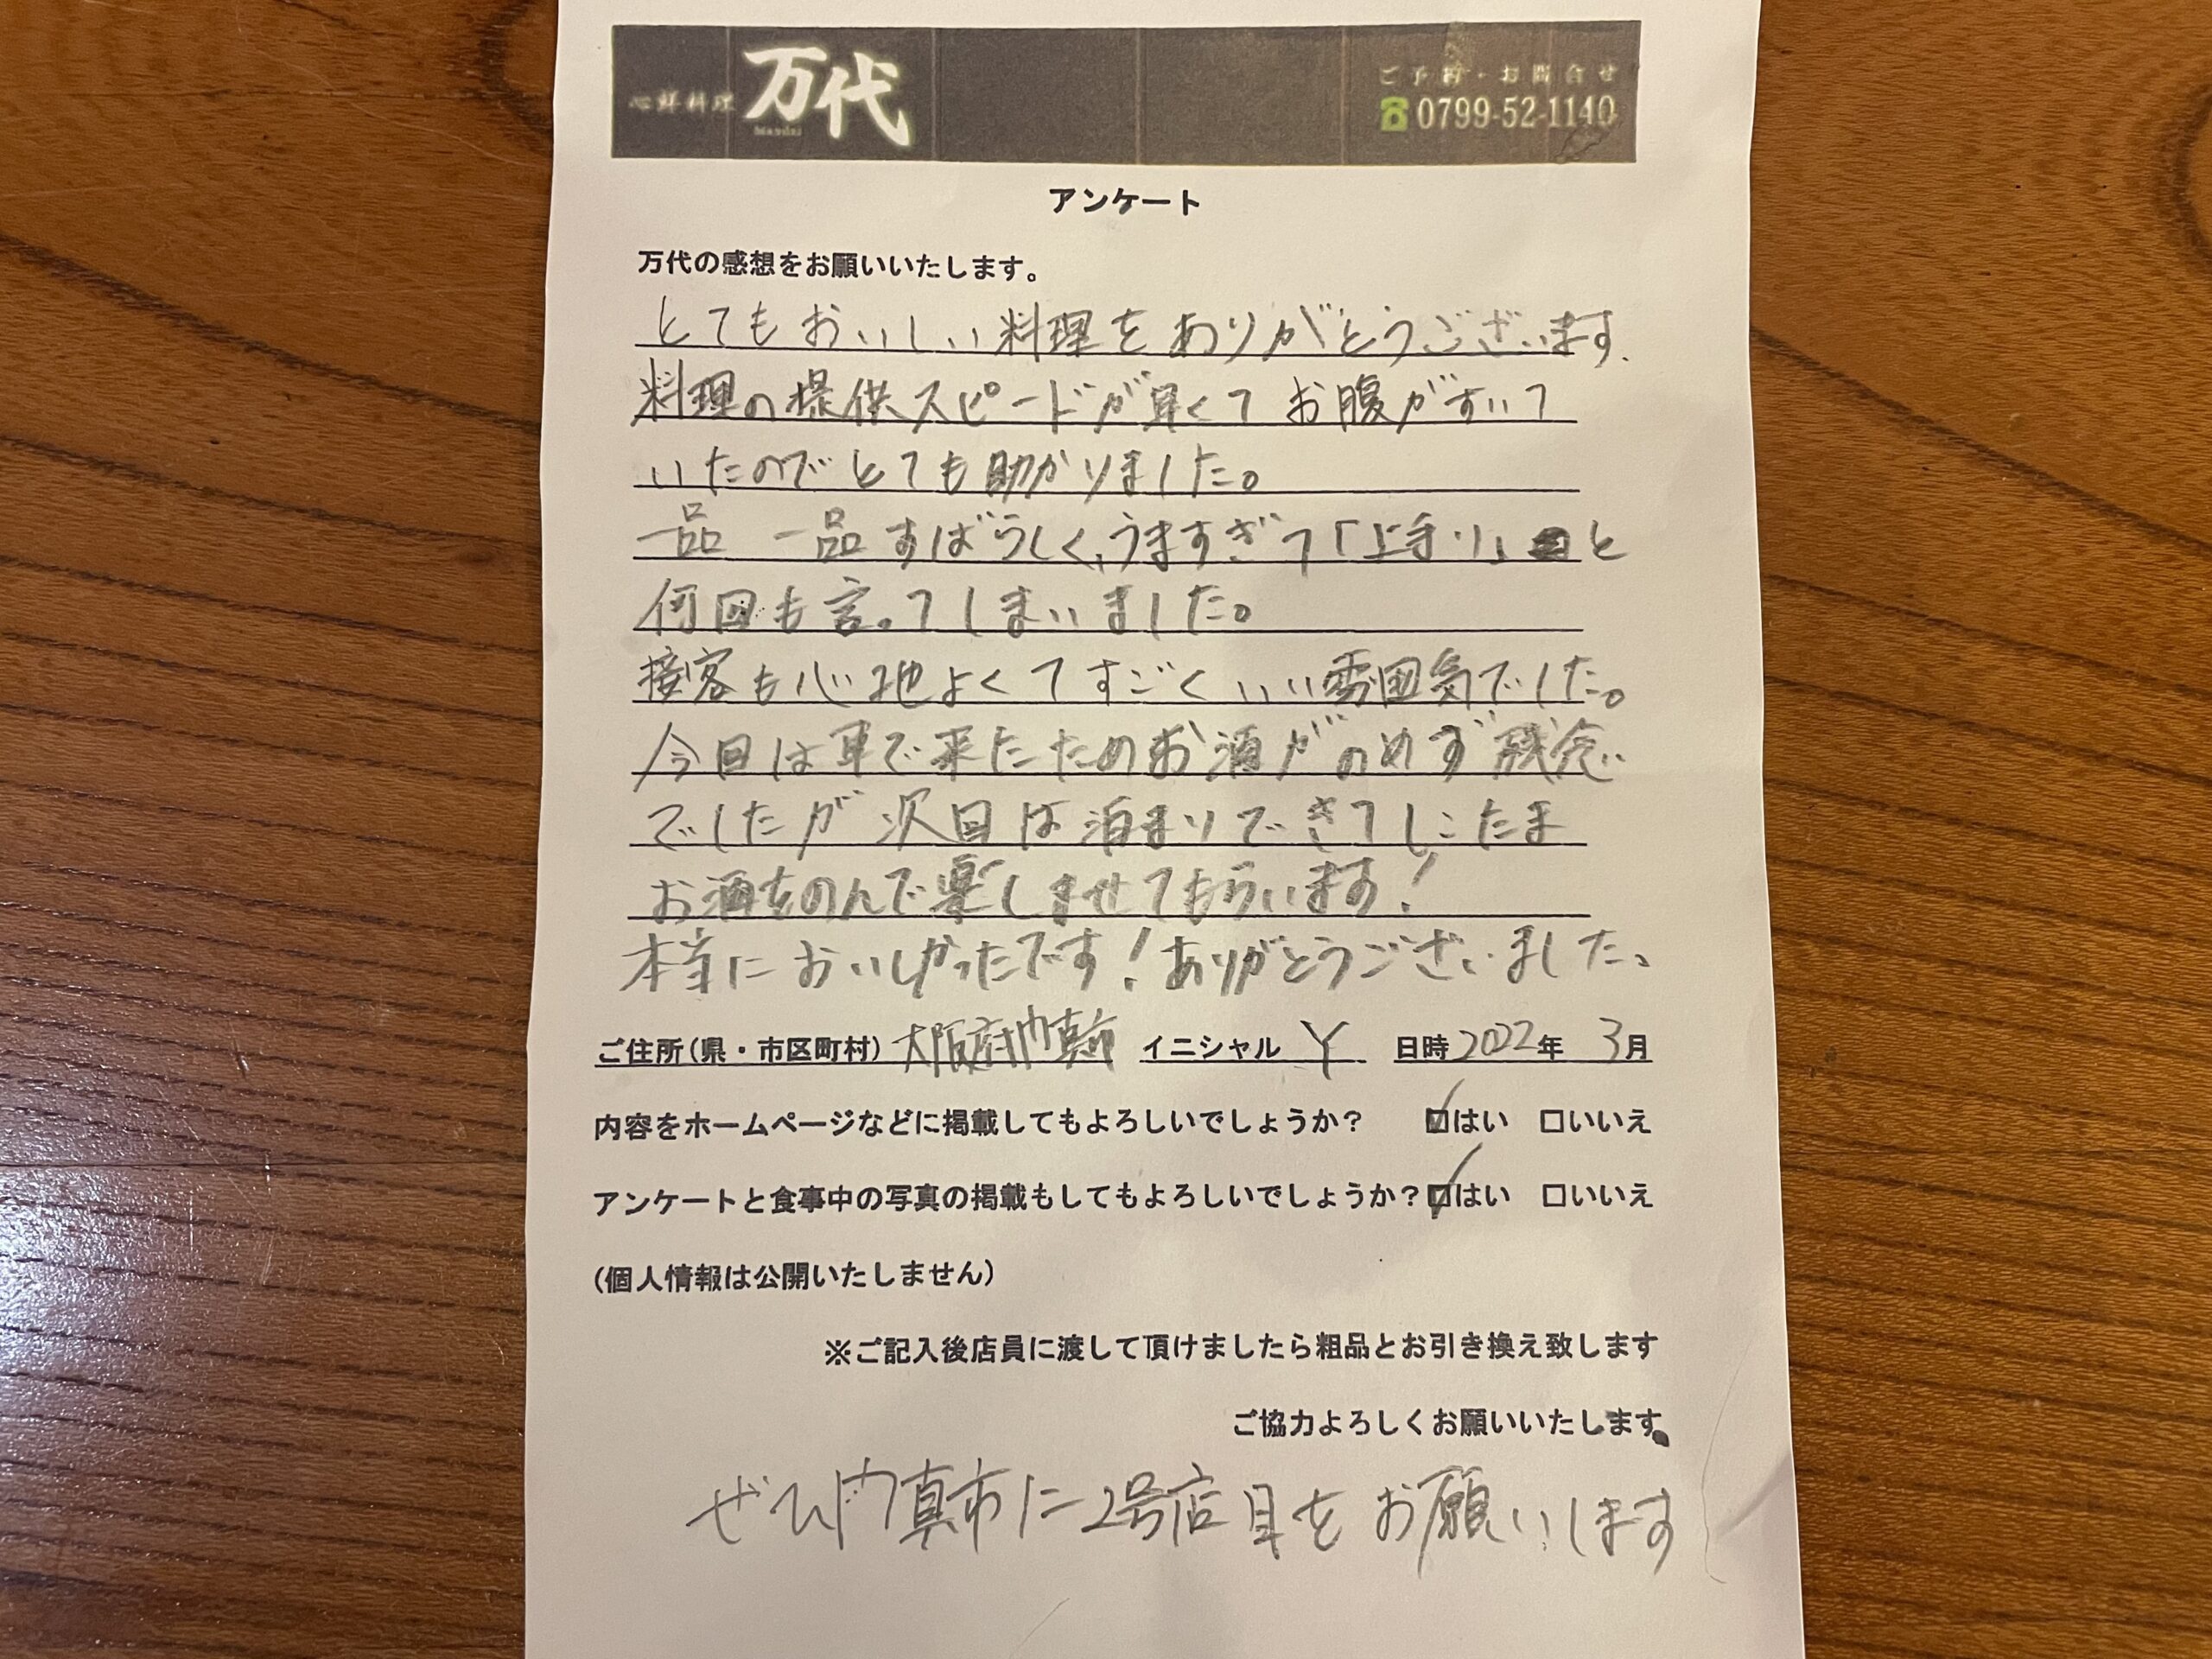 心鮮料理 万代
Mandai
ご予約・お問合せ
0799-52-1140
アンケート
万代の感想をお願いいたします。
とてもおいしい料理をありがとうございます.
料理の提供スピードが早くてお腹がすいて
いたのでとても助かりました。
一品一品すばらしく、うますぎて「上手い」と
何回も言ってしまいました。
接客も心地よくてすごくいい雰囲気でした。
今日は車で来たためお酒がのめず残念
でしたが次回は泊まりできてしこたま
お酒をのんで楽しませてもらいます!
本当においしかったです!ありがとうございました、
ご住所(県・市区町村) 大阪府門真市 イニシャル Y 日時 2022年 3月
内容をホームページなどに掲載してもよろしいでしょうか? ☑はい □いいえ
アンケートと食事中の写真の掲載もしてもよろしいでしょうか?☑はい □いいえ
(個人情報は公開いたしません)
※ご記入後店員に渡して頂けましたら粗品とお引き換え致します
ご協力よろしくお願いいたします。
ぜひ門真市に2号店目をお願いします